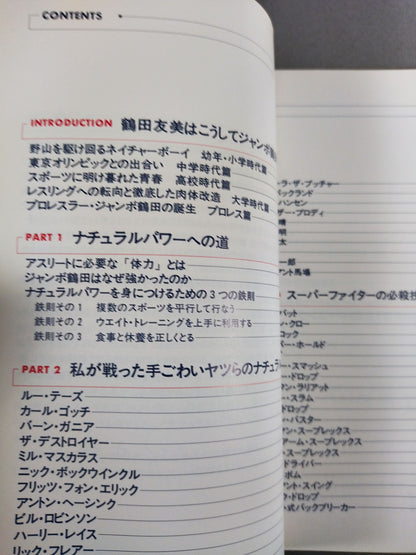 CONTENTS
INTRODUCTION 鶴田友美はこうしてジャンボ
野山を駆け回るネイチャーボーイ 幼年・小学時代篇
東京オリンピックとの出合い 中学時代篇
スポーツに明け暮れた青春 高校時代篇
レスリングへの転向と徹底した肉体改造 大学時代篇
プロレスラー・ジャンボ鶴田の誕生 プロレス篇
PART 1 ナチュラルパワーへの道
アスリートに必要な「体力」とは
ジャンボ鶴田はなぜ強かったのか
ナチュラルパワーを身につけるための3つの鉄則
鉄則その1 複数のスポーツを平行して行なう
鉄則その2 ウエイト・トレーニングを上手に利用する
鉄則その3 食事と休養を正しくとる
PART 2 私が戦った手ごわいヤツらのナチュラ
ルー・テーズ
カール・ゴッチ
バーン・ガニア
ザ・デストロイヤー
ミル・マスカラス
ニック・ボックウインクル
フリッツ・フォン・エリック
アントン・ヘーシンク
ビル・ロビンソン
ハーリー・レイス
リック・フレアー
ラ・ザ・ブッチャー
バックランド
ハンセン
ザー・ブロディ
晴
明
太
一郎
アント馬場
スーパーファイターの必殺技
バット
ン・クロー
コック
パー・ホールド
ー・スマッシュ
ー・ドロップ
タン・ラリアット
ー・スラム
ドロップ
・バスター
マン・スープレックス
アーム・スープレックス
ドライバー
ボム
アント・スイング
ク・ドロップ
ン式バックブリーカー